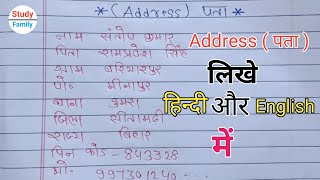 Study
Family
* (Address) पता *
नाम संतोष कुमार
पिता रामप्रवेश सिंह
ग्राम बरियारपुर
पो०
थाना डुमरा
जिला सीतामढ़ी
राज्य बिहार
पिन कोड - 843328
मो० - 997301240 -...
Address ( पता )
लिखे
हिन्दी और English
में